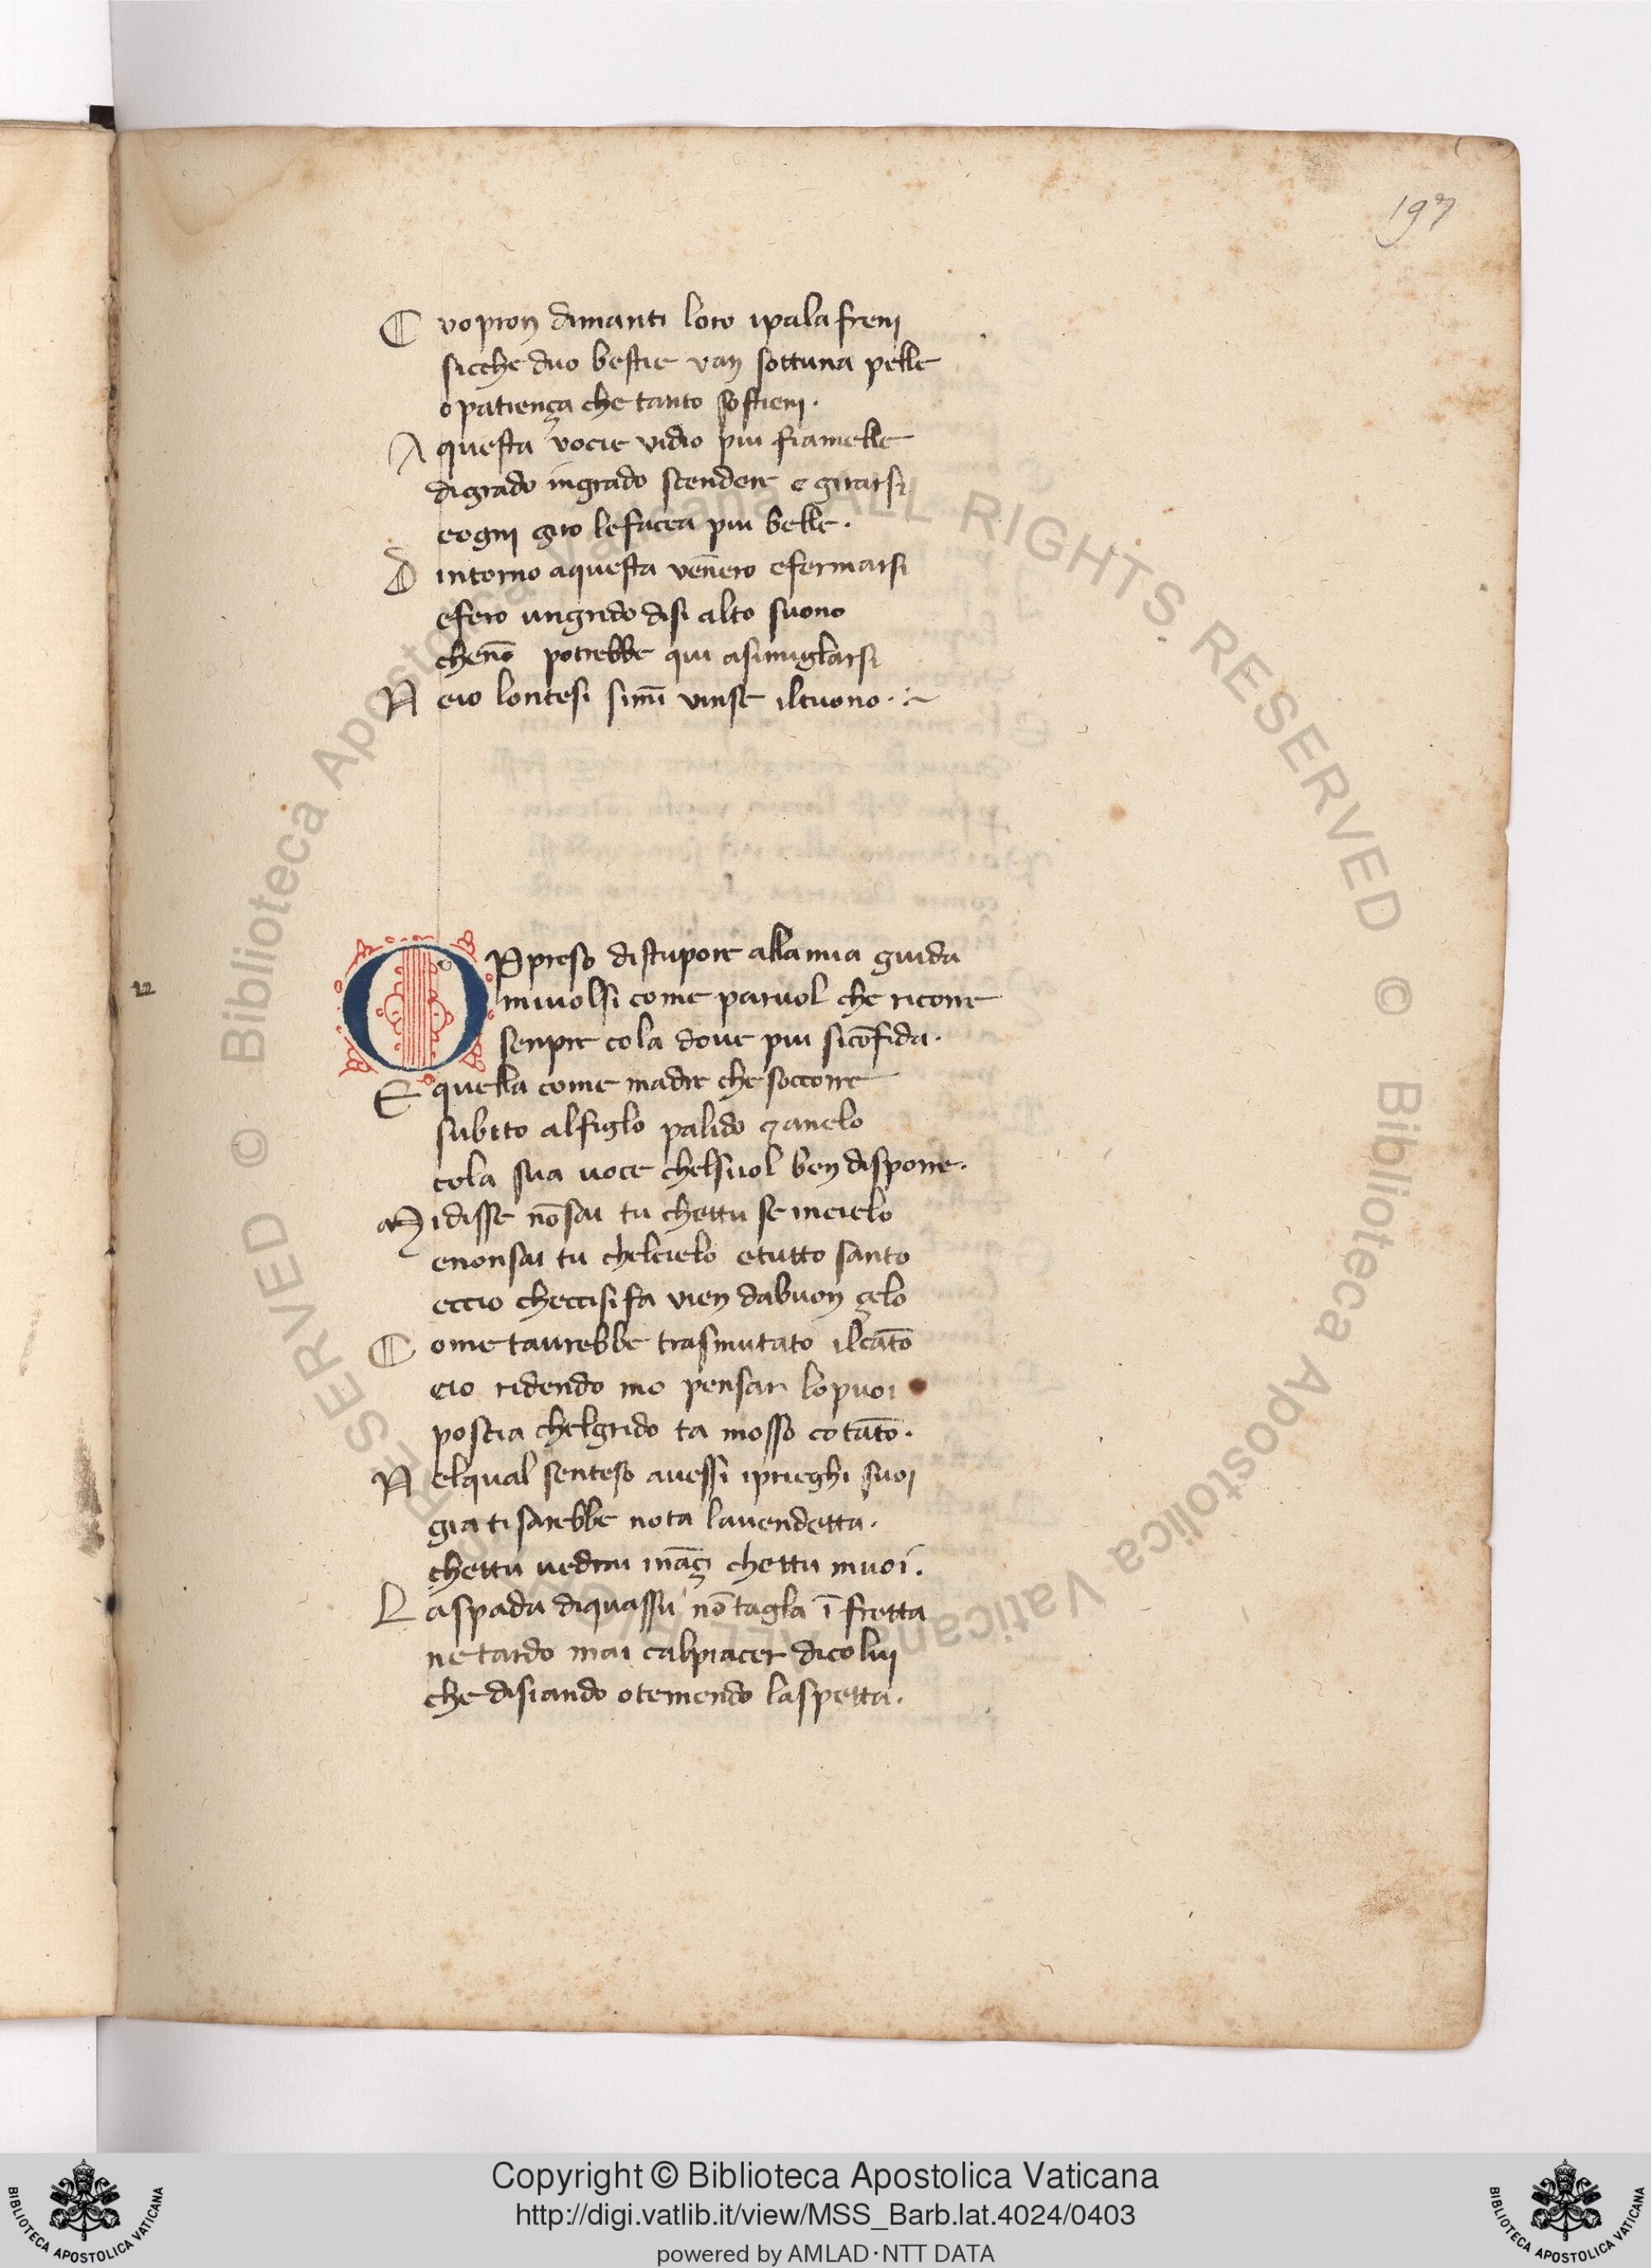 197
C uopron dinanti loro ipalafreni
sicche duo bestie van sottuna pelle
o patiença che tanto sostieni.
A questa vocie vidio piu fiamelle
digrado ingrado scendere e girarsi
eogni giro lefacea piu belle.
D intorno aquesta vēnero efermarsi
efero ungrido disi alto suono
chenō potrebbe qui asimiglarsi
N eio lontesi simī vinse iltuono.
22
O Ppreso distupore allamia guida
miuolsi come paruol che ricorre
senpre cola doue piu sicōfida.
E quella come madre che soccorre
subito alfiglo palido ⁊ anelo
cola sua uoce chelsuol ben disporre.
M idisse nōsai tu chettu se incielo
enonsai tu chelcielo etutto santo
eccio checcisifa vien dabuon çelo
C ome taurebbe trasmutato ilcāto
eio ridendo mo pensar lopuoi
poscia chelgrido ta mosso cotāto.
N elqual senteso auessi iprieghi suoi
gia ti sarebbe nota lauendetta.
chettu uedrai ināçi chettu muoi.
L aspada diquassu nō tagla ī fretta
ne tardo mai calpiacer dicolui
che disiando otemendo laspetta.
© Biblioteca Apostolica Vaticana ALL RIGHTS RESERVED
© Biblioteca Apostolica Vaticana ALL RIGHTS RESERVED
BIBLIOTECA APOSTOLICA VATICANA
Copyright © Biblioteca Apostolica Vaticana
http://digi.vatlib.it/view/MSS_Barb.lat.4024/0403
powered by AMLAD·NTT DATA
BIBLIOTECA APOSTOLICA VATICANA